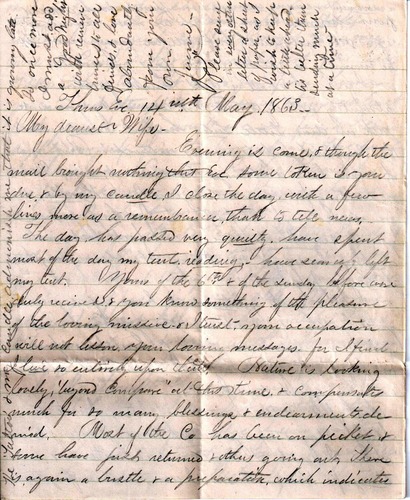 Thurs Ev 14 inst May, 1863.
My dearest Wife
Evening is come, & though the
mail brought nothing but some token is your
due & by my candle I close the day, with a few
lines more as a remembrance, than to tell news.
The day has passed very quietly. have spent
most of the day my tent, reading, have scarcely left
my tent. Yours of the 6th & of the Sunday before were
duly received & you know something of the pleasure
of the loving missive & I trust your occupation
will not your loving messages for I find
I live so entirely upon them. Nature is looking
lovely, "beyond compare" at this time, & compensates
much for so many blessings & endearments de
nied. Most of the Co has been on picket &
some have just returned & others going out, there
is again a bustle & a preparation, which indicates
once more
a Good Night
abundantly
from your
own
Please
letter
a little
better than
sending much
at a time
my candle admonish me that it is growing late